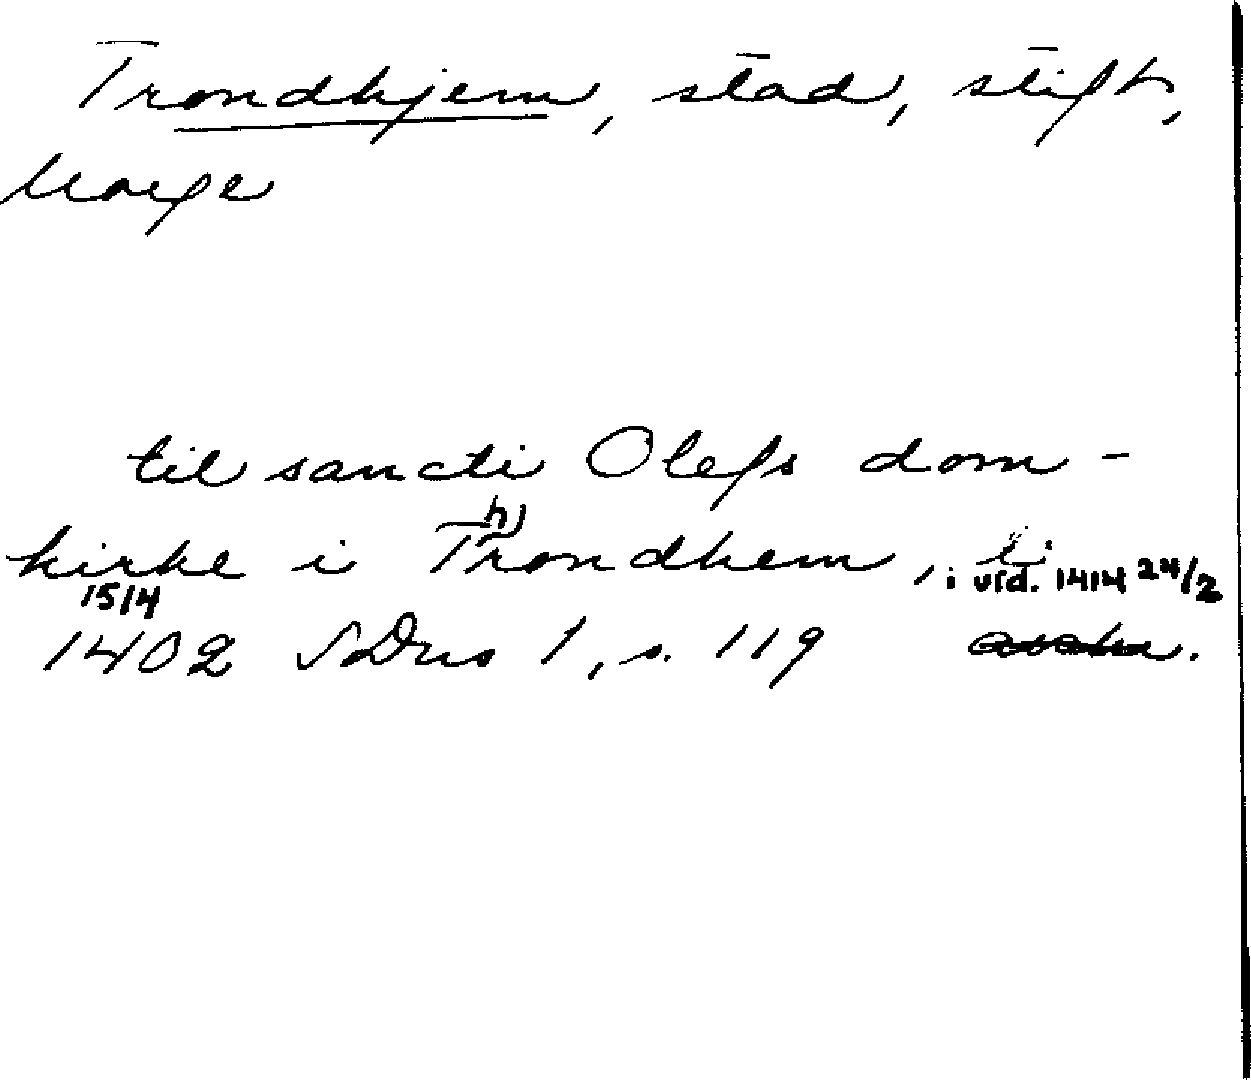 Trondhjem, stad, stift,
Norge
til sancti Olefs dom-
kirke i Throndhem, i vid. 1414 24/2
15/4
1402 SDns 1, s. 119